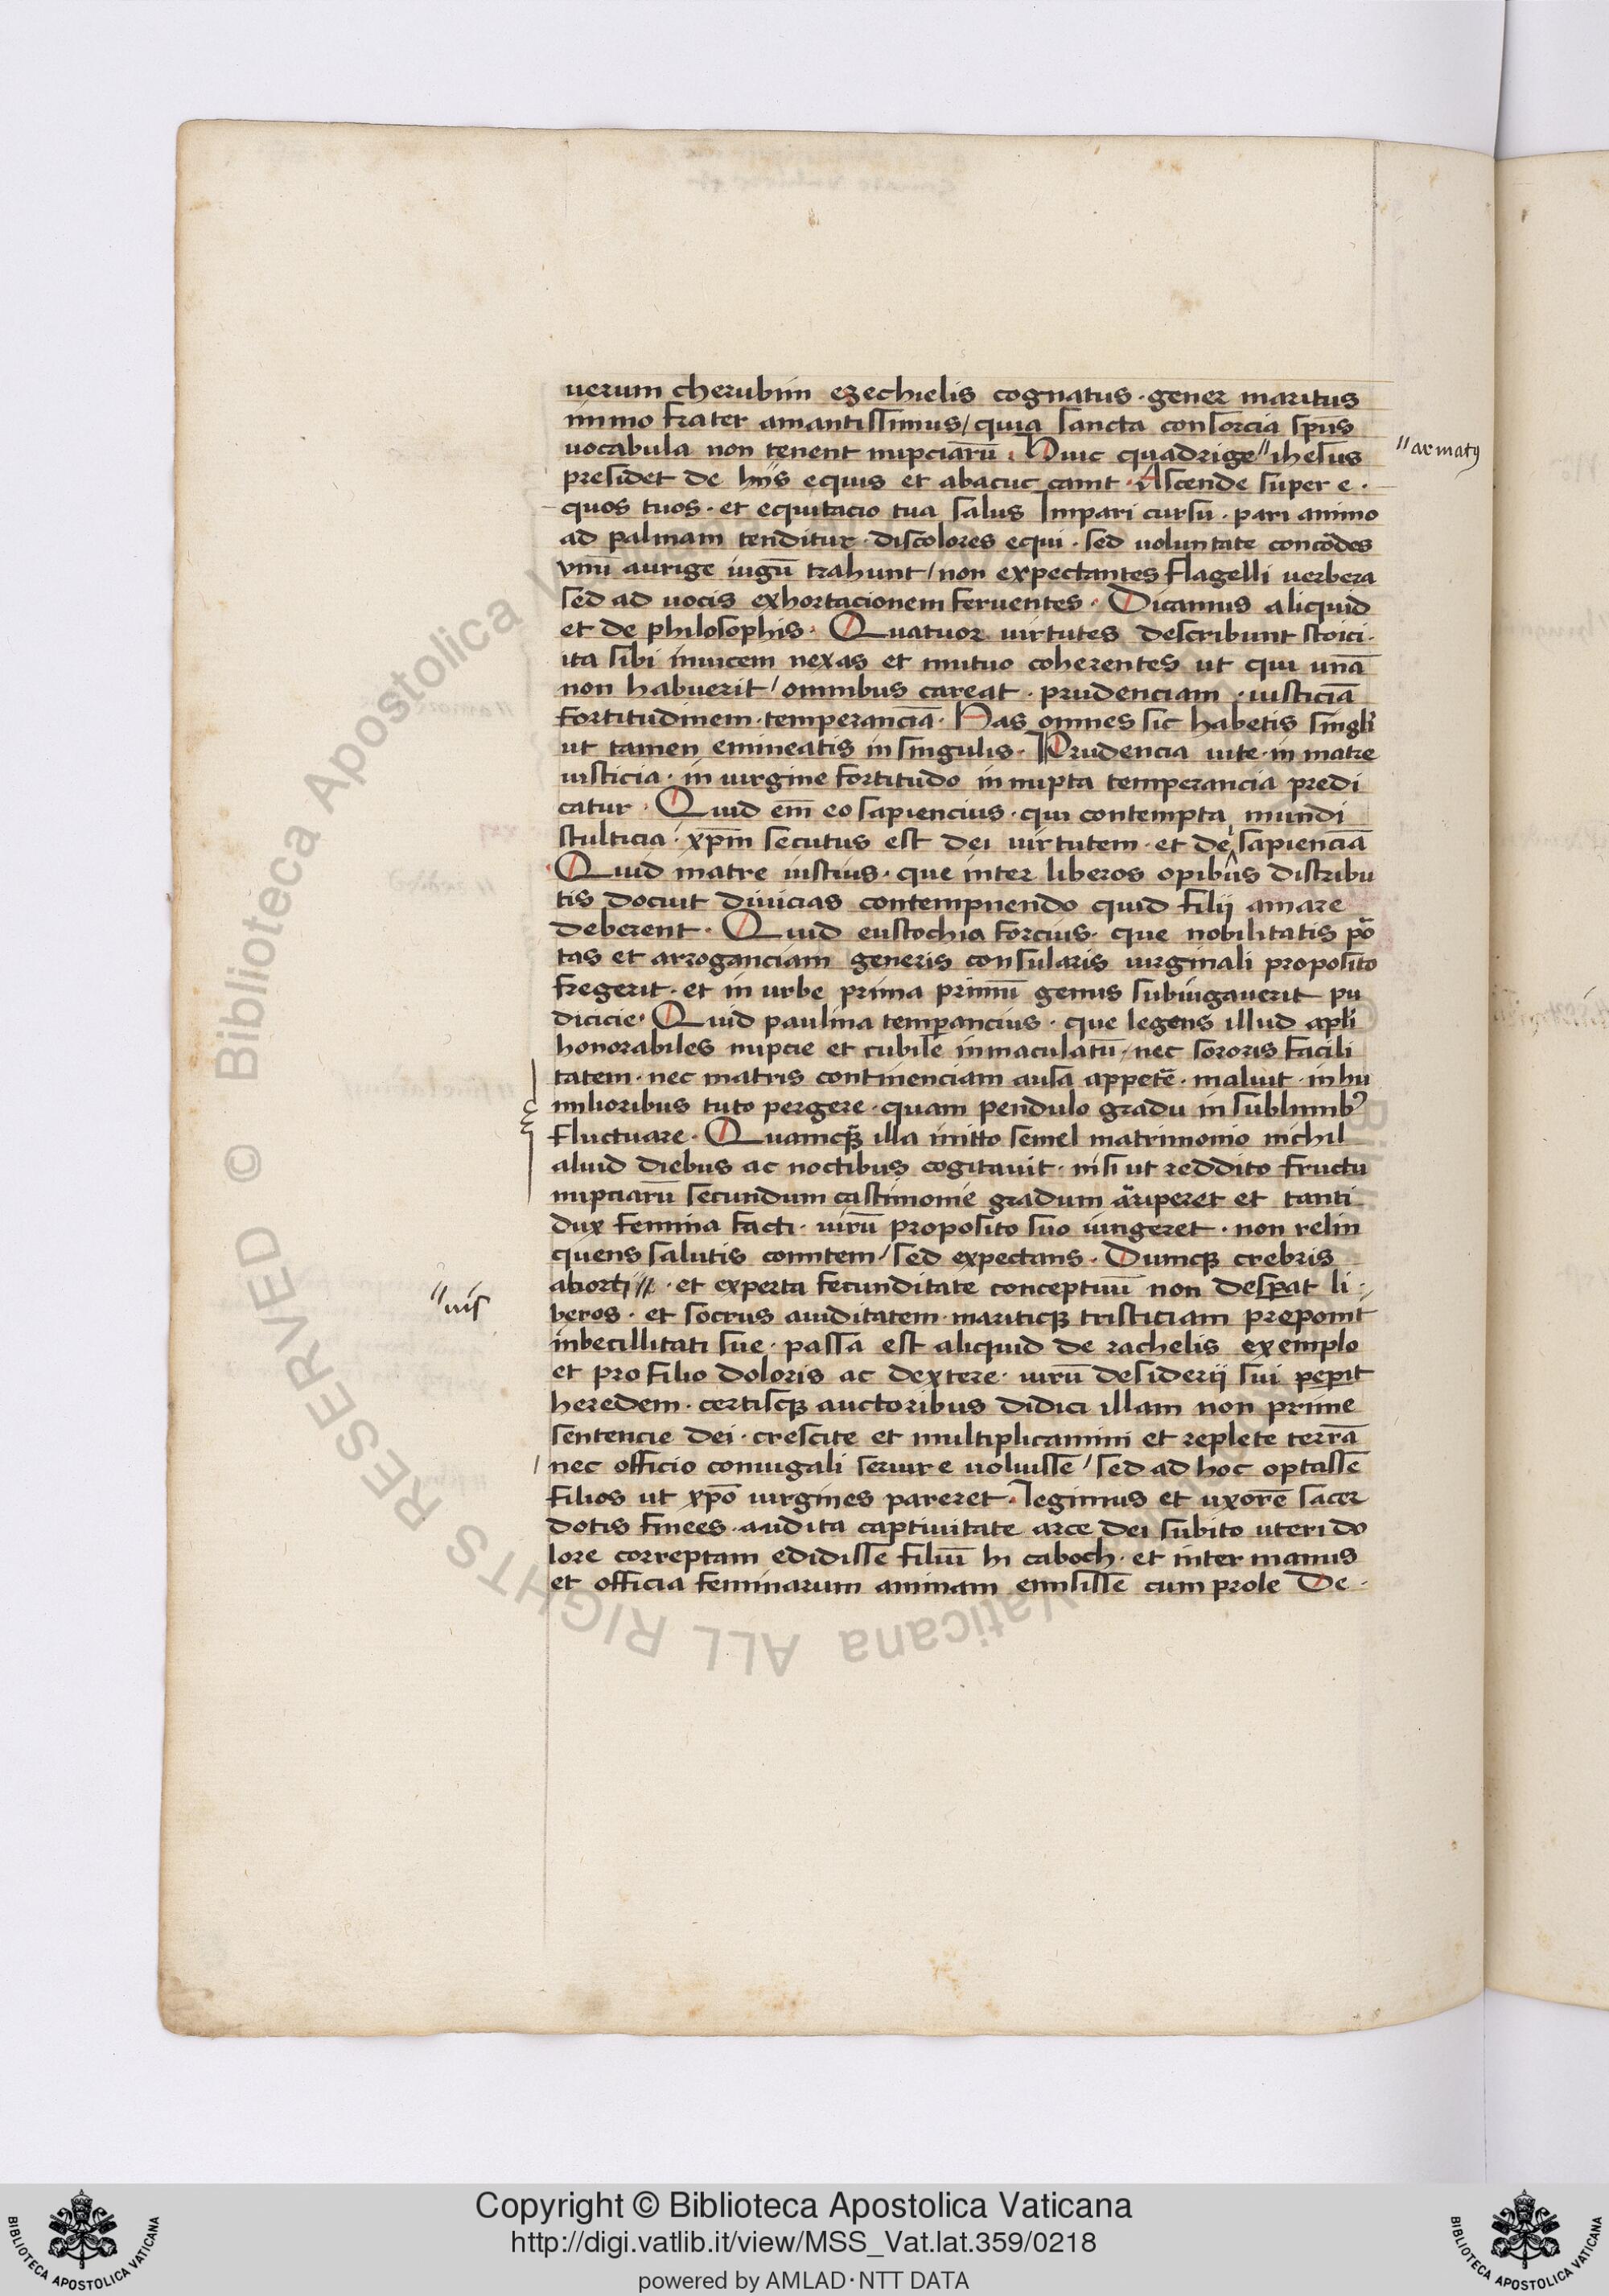 uerum cherubim ezechielis cognatus · gener maritus
immo frater amantissimus / quia sancta consorcia sp̄us
uocabula non tenent nupciarū · Huic quadrige " ihesus
"armatꝯ
presidet de hijs equis et abacuc canit · Ascende super e ·
quos tuos · et equitacio tua salus Impari cursu · pari animo
ad palmam tenditur · discolores equi · sed uoluntate concordes
vnū aurige iugū trahunt / non expectantes flagelli uerbera
sed ad uocis exhortacionem feruentes · Dicamus aliquid
et de philosophis · Quatuor uirtutes describunt stoici ·
ita sibi inuicem nexas et mutuo coherentes ut qui unā
non habuerit / omnibus careat · prudenciam · iusticiā
fortitudinem · temperanciā · Has omnes sic habetis singli
ut tamen emineatis in singulis · Prudencia uite · in matre
iusticia · in uirgine fortitudo in nupta temperancia predi
catur · Quid em̄ eo sapiencius · qui contempta mundi
stulticia · xp̄m secutus est dei uirtutem · et de sapienciā
Quid matre iustius · que inter liberos opibus distribu
tis docuit diuicias contempnendo quid filij amare
deberent · Quid eustochia forcius · que nobilitatis por
tas et arroganciam generis consularis uirginali proposito
fregerit · et in urbe prima primū genus subiugauerit pu
dicicie · Quid paulina temperancius · que legens illud apli
honorabiles nupcie et cubile inmaculatū / nec sororis facili
tatem · nec matris continenciam ausa appetē · maluit · in hu
milioribus tuto pergere · quam pendulo gradu in sublimibꝰ
fluctuare · Quamqꝫ illa inito semel matrimonio nichil
aliud diebus ac noctibus cogitauit · nisi ut reddito fructu
nupciarū secundum castimonie gradum arriperet et tanti
dux femina facti · uirū proposito suo iungeret · non relin
quens salutis comitem / sed expectans · Dumqꝫ crebris
aborti // · et experta fecunditate conceptuū non desperat li -
"uis
beros · et socrus auiditatem · mariticqꝫ tristiciam preponit
inbecillitati sue · passa est aliquid de rachelis exemplo
et pro filio doloris ac dextere · uirū desiderij sui peperit
heredem · certisqꝫ auctoribus didici illam non prime
sentencie dei · crescite et multiplicamini et replete terrā
nec officio coniugali seruire uoluisse / sed ad hoc optasse
filios ut xpō uirgines pareret · legimus et uxorē sacer
dotis finees · audita captiuitate arce dei subito uteri do
lore correptam edidisse filiū hi caboch · et inter manus
et officia feminarum animam emisisse cum prole De ·
Copyright © Biblioteca Apostolica Vaticana
http://digi.vatlib.it/view/MSS_Vat.lat.359/0218
powered by AMLAD · NTT DATA